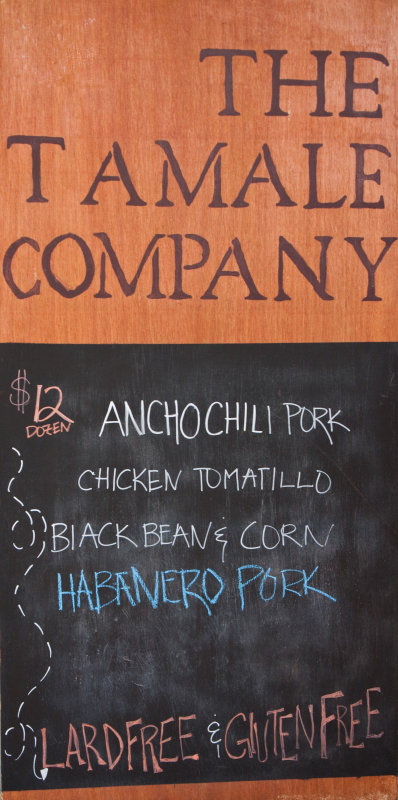 THE
TAMALE
COMPANY
$12
DOZEN
ANCHO CHILI PORK
CHICKEN TOMATILLO
BLACK BEAN & CORN
HABANERO PORK
LARD FREE & GLUTEN FREE